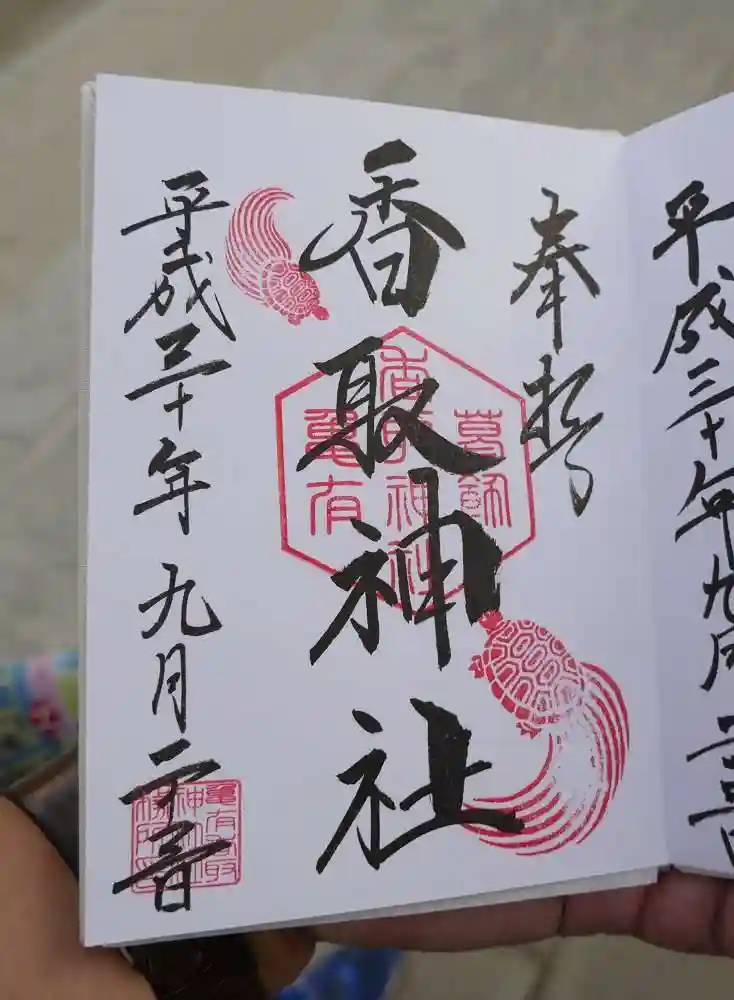 平成三十年九月
奉拝
香取神社
葛飾
香取神社
亀有
平成三十年九月二十三日
亀有香取